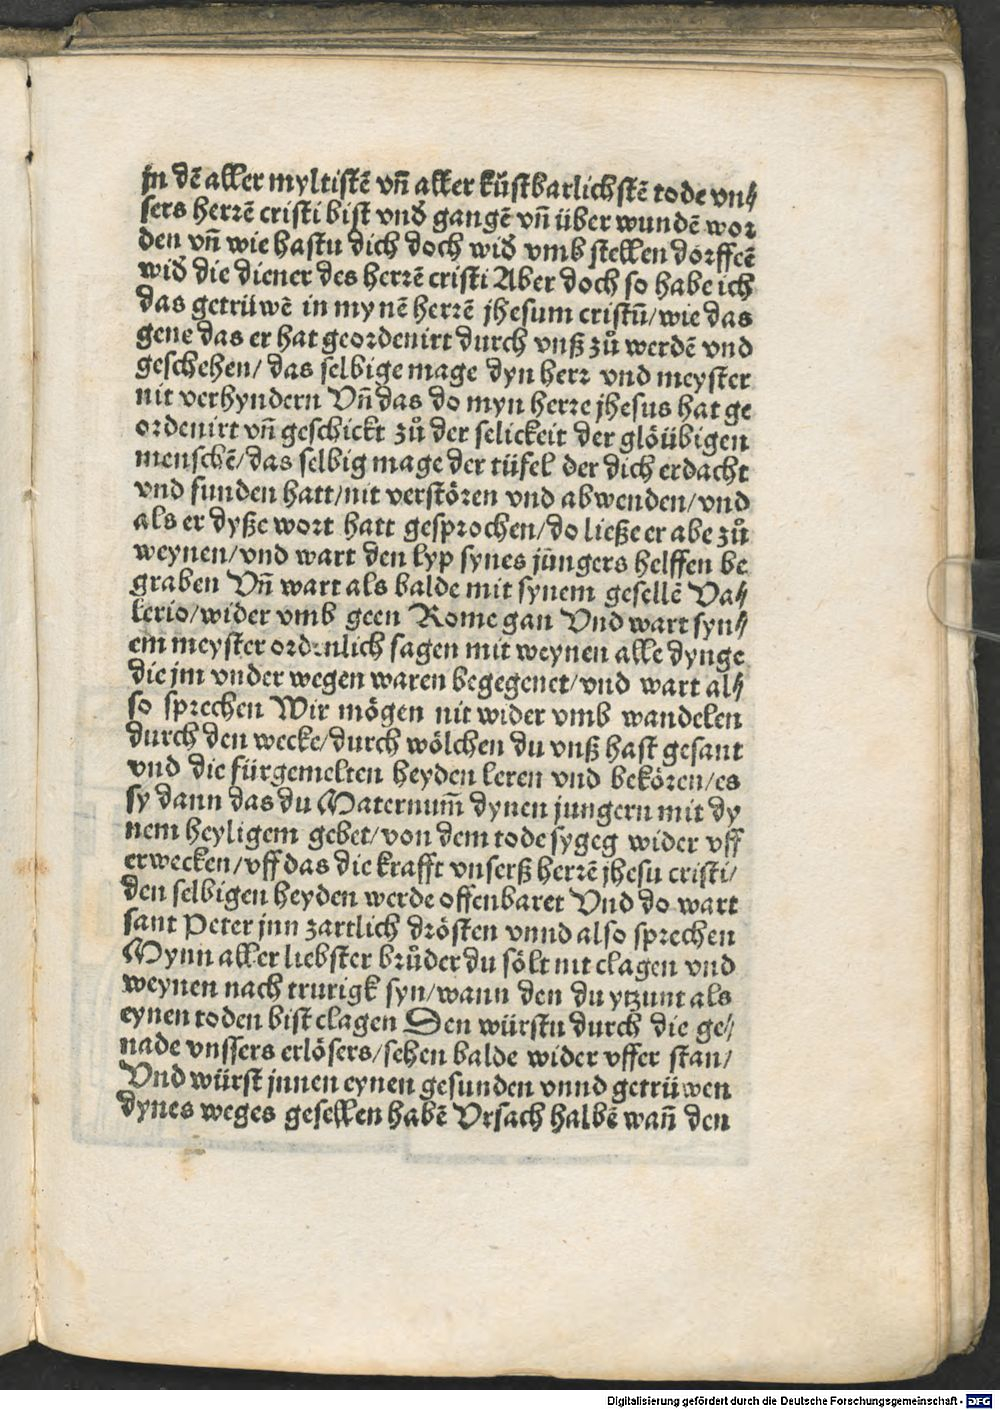 jn dē aller myltistē vn̄ aller kūstbarlichstē tode vn⸗
sers herrē cristi bist vnđ gangē vn̄ über wundē wor
den vn̄ wie hastu dich doch wiđ vmb stellen dorffeē
wiđ die diener des herrē cristi Aber doch so habe ich
das getrüwē in mynē herrē jhesum cristū/wie das
gene das er hat geordenirt durch vnß zů werdē vnd
geschehen/ das selbige mage dyn herr vnd meyster
nit verhyndern Vn̄ das do myn herre jhesus hat ge
ordenirt vn̄ geschickt zů der selickeit der glöübigen
menschē/das selbig mage der tüfel der dich erdacht
vnd funden hatt/nit verstören vnd abwenden/vnd
als er dyße wort hatt gesprochen/do ließe er abe zů
weynen/vnd wart den lyp synes jūngers helffen be
graben Vn̄ wart als balde mit synem gesellē Va⸗
lerio/wider vmb geen Rome gan Vnd wart syn⸗
em meyster ordenlich sagen mit weynen alle dynge
die jm vnder wegen waren begegenet/vnd wart al⸗
so sprechen Wir mögen nit wider vmb wandelen
durch den wecke/durch wölchen du vnß hast gesant
vnd die fürgemelten heyden leren vnd bekören/es
sy dann das du Maternum̄ dynen jungern mit dy
nem heyligem gebet/von dem tode sygeg wider vff
erwecken/vff das die krafft vnserß herrē jhesu cristi/
den selbigen heyden werde offenbaret Vnd do wart
sant Peter jnn zartlich drösten vnnd also sprechen
Mynn aller liebster brůder du sölt nit clagen vnd
weynen nach trurigk syn/wann den du ytzunt als
eynen toden bist clagen Den würstu durch die ge⸗
nade vnssers erlösers/sehen balde wider vffer stan/
Vnd würst jnnen eynen gesunden vnnd getrüwen
dynes weges gesellen habē Vrsach halbē wan̄ den
Digitalisierung gefördert durch die Deutsche Forschungsgemeinschaft - DFG